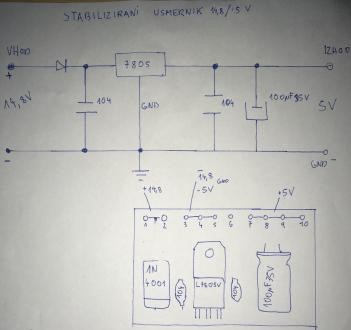 STABILIZIRANI USMERNIK 14,8/5 V
VHOD
IZHOD
+
7805
14,8V
104
GND
104
100µF35V
5V
-
GND -
+14,8
-14,8 GND
-5V
+5V
1 2 3 4 5 6 7 8 9 10
1N
4001
104
L7805V
104
100µF35V